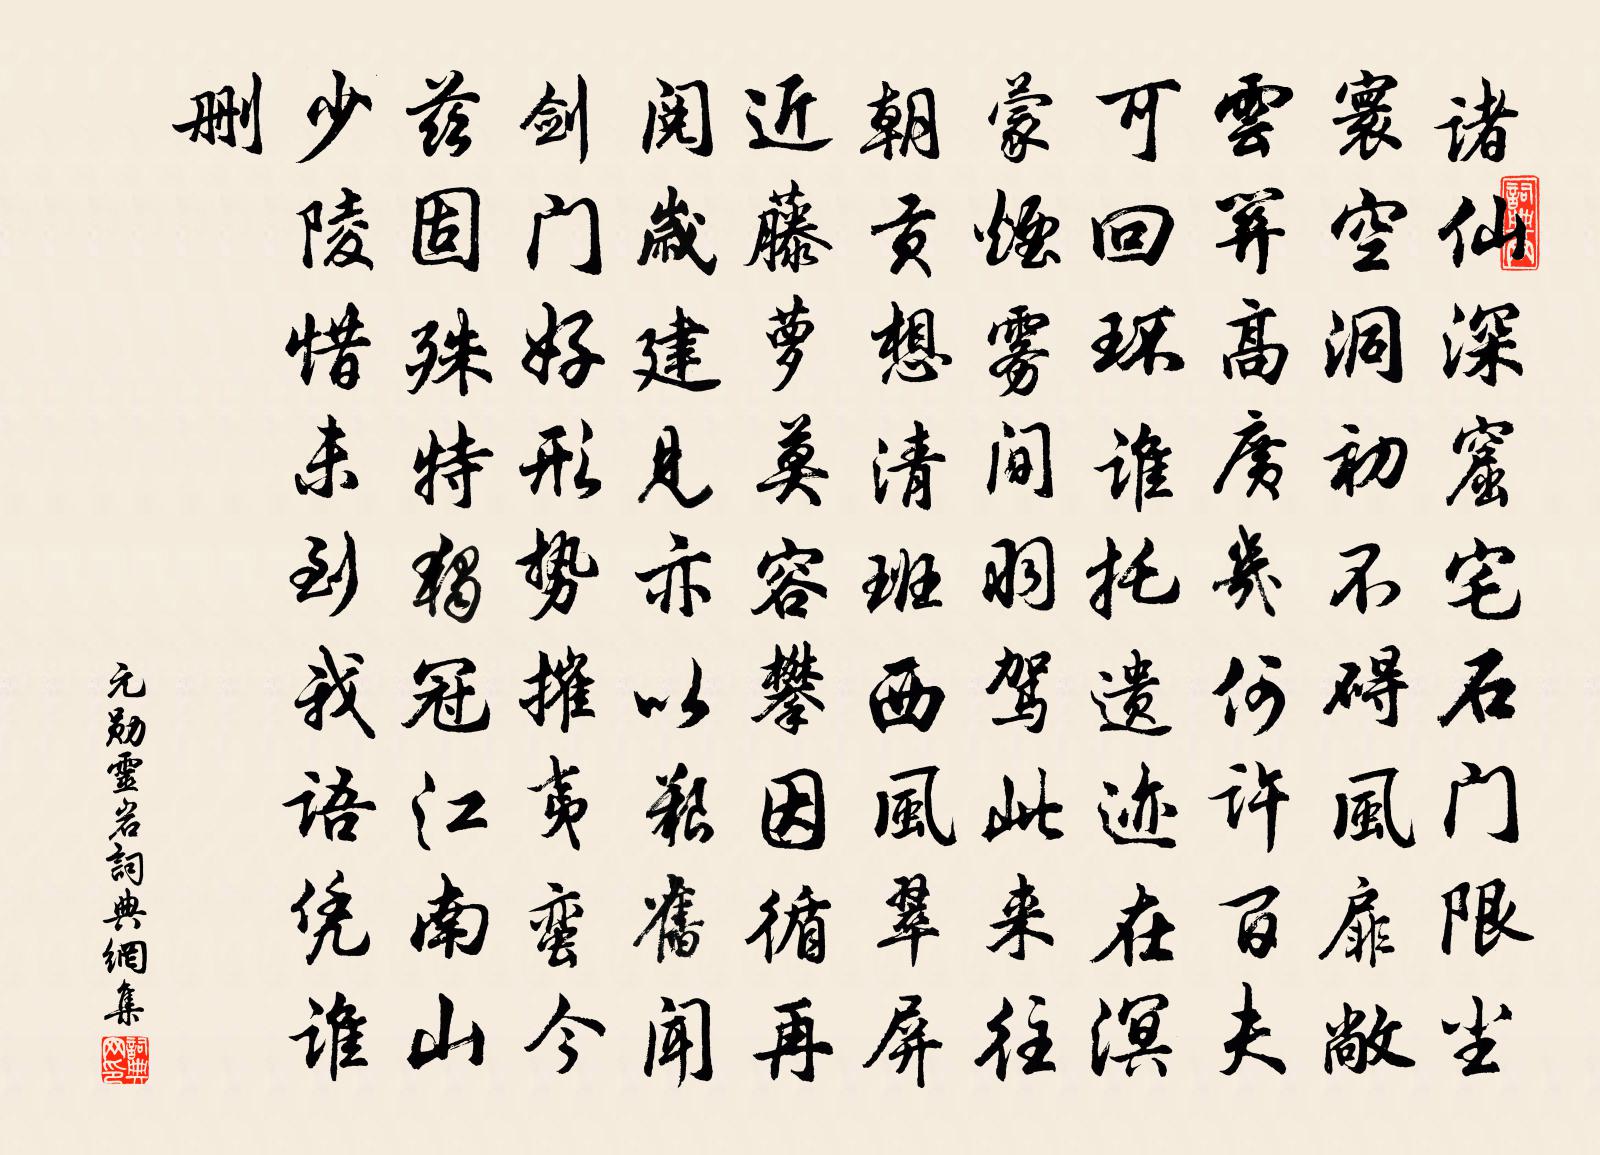 诸仙深窟宅石门限尘
寰空洞初不碍風扉敞
雲关高廣幾何许百夫
可回环谁托遗迹在溟
蒙煙雾间羽驾此来往
朝贡想清班西風翠屏
近藤萝莫容攀因循再
阅歲建见亦以艰舊闻
剑门好形势摧夷蛮今
兹固殊特獨冠江南山
少陵惜未到我语凭谁
删
元勋靈岩詞典網集